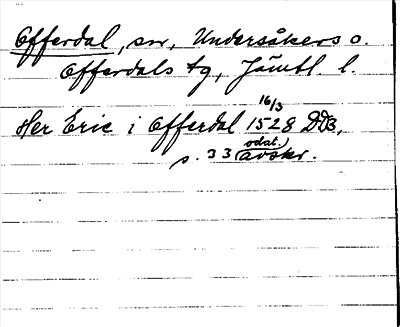 Offerdal, sn, Undersåkers o.
Offerdals tg, Jämtl. l.
16/3
Her Eric i Offerdal 1528 DD3,
odat.
s. 33 (avskr.)